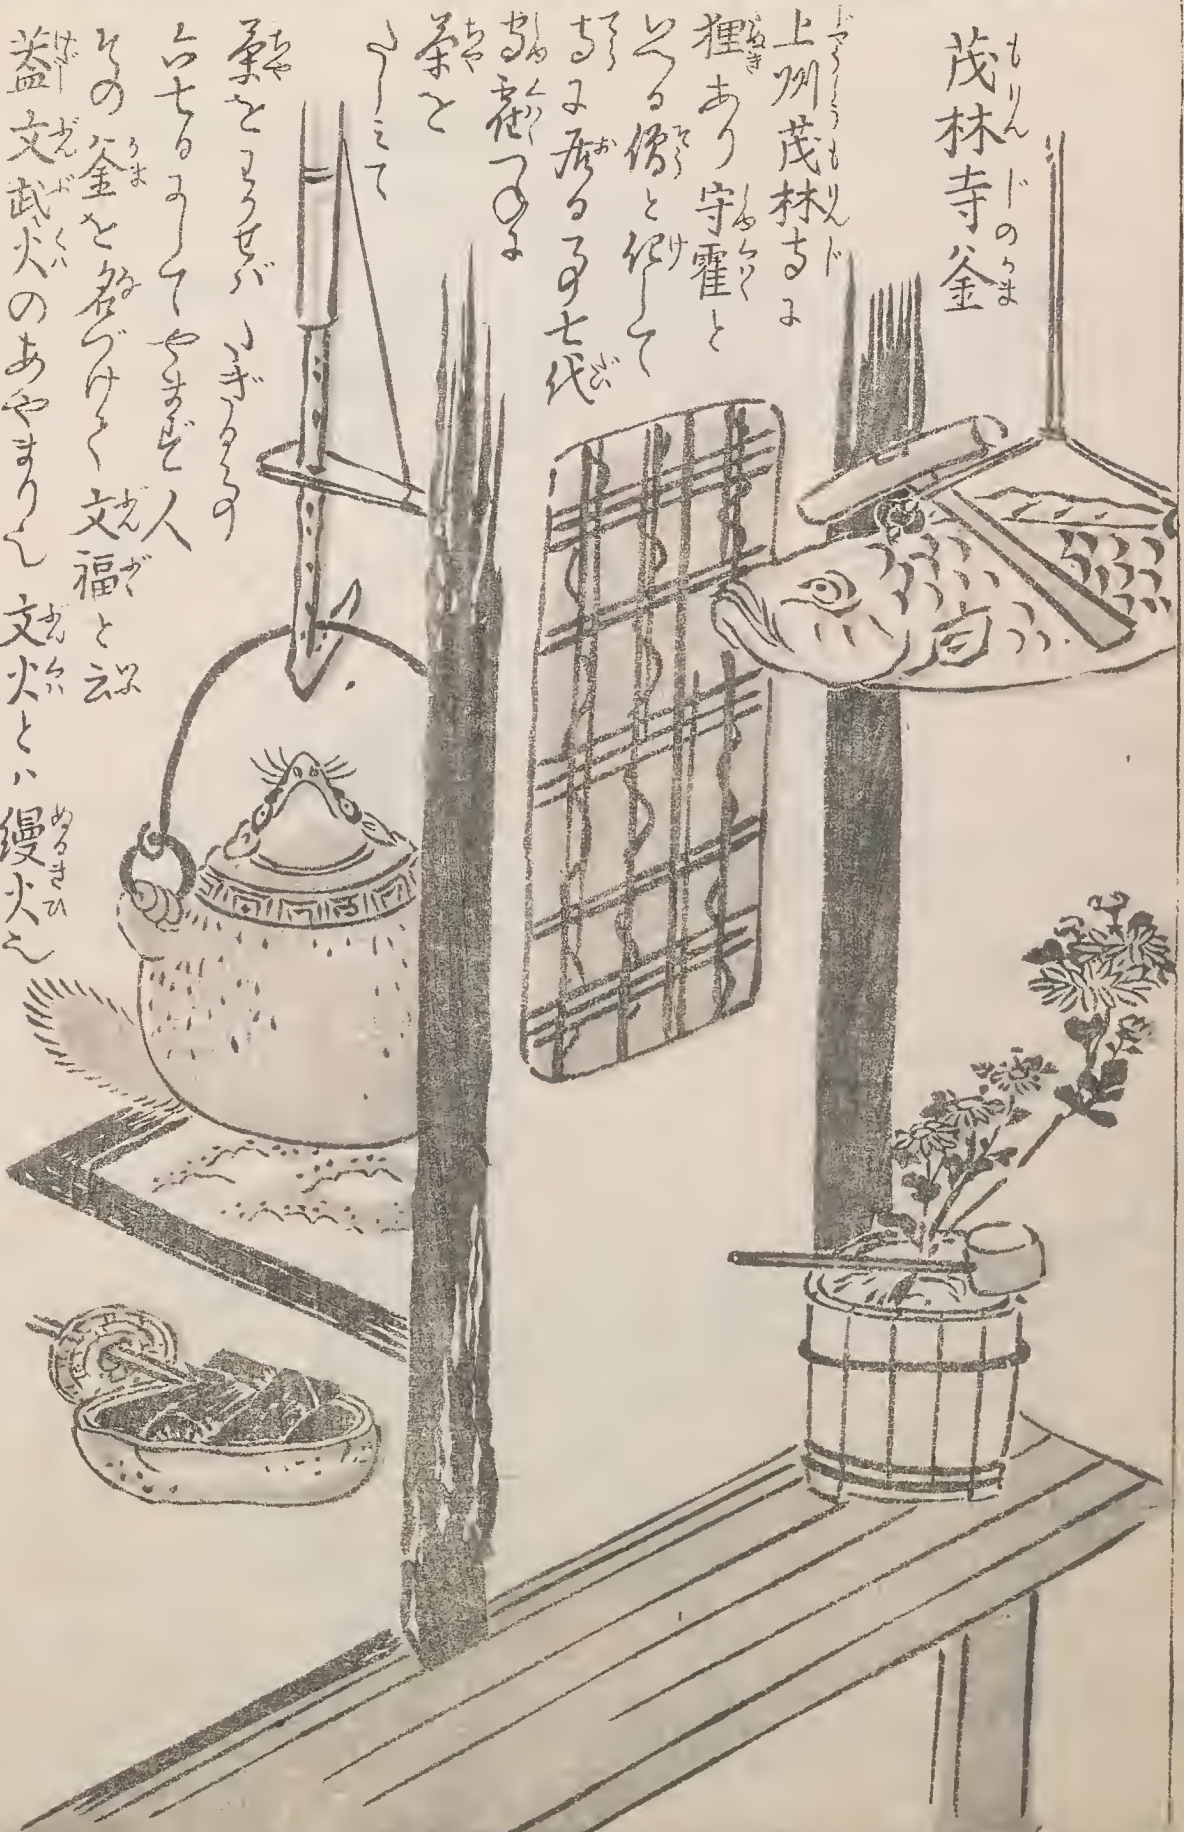 茂林寺釜
上州茂林寺に
狸あり守霍と
いへる僧と化して
寺に居る事七代
守霍つねに
茶を
たしみて
茶をわかせバたぎる事
六七日にしてやまず人
その釜を名づけて文福と云
蓋文武火のあやまり也文火とハ縵火也